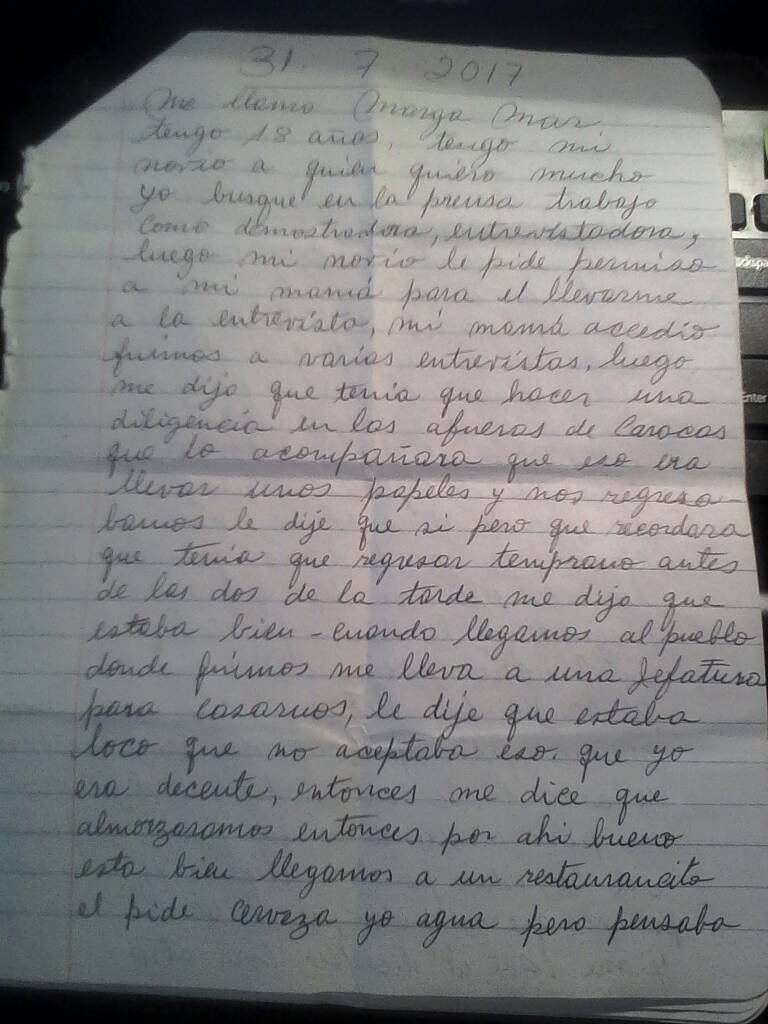 31. 7. 2017
Me llamo Marga Mar
tengo 18 años, tengo mi
novio a quien quiero mucho
yo busque en la prensa trabajo
como demostradora, entrevistadora,
luego mi novio le pide permiso
a mi mamá para el llevarme
a la entrevista, mi mamá accedio
fuimos a varias entrevistas, luego
me dijo que tenia que hacer una
diligencia en las afueras de Caracas
que lo acompañara que eso era
llevar unos papeles y nos regresa-
bamos le dije que si pero que recordara
que tenia que regresar temprano antes
de las dos de la tarde me dijo que
estaba bien - cuando llegamos al pueblo
donde fuimos me lleva a una Jefatura
para casarnos, le dije que estaba
loco que no aceptaba eso. que yo
era decente, entonces me dice que
almorzaramos entonces por ahi bueno
esta bien llegamos a un restaurancito
el pide cerveza yo agua pero pensaba
Enter